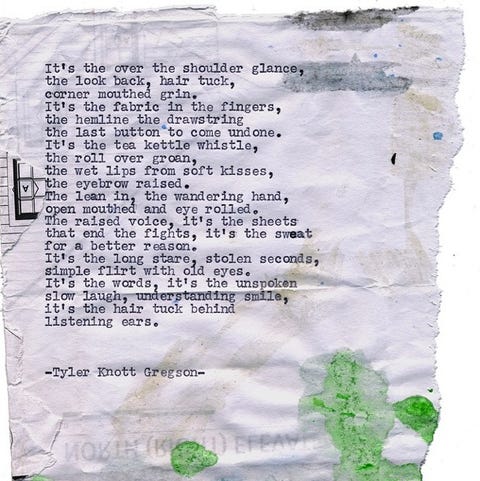 It's the over the shoulder glance,
the look back, hair tuck,
corner mouthed grin.
It's the fabric in the fingers,
the hemline the drawstring
the last button to come undone.
It's the tea kettle whistle,
the roll over groan,
the wet lips from soft kisses,
the eyebrow raised.
The lean in, the wandering hand,
open mouthed and eye rolled.
The raised voice, it's the sheets
that end the fights, it's the sweat
for a better reason.
It's the long stare, stolen seconds,
simple flirt with old eyes.
It's the words, it's the unspoken
slow laugh, understanding smile,
it's the hair tuck behind
listening ears.
-Tyler Knott Gregson-
NORTH (RIGHT) ELEVA